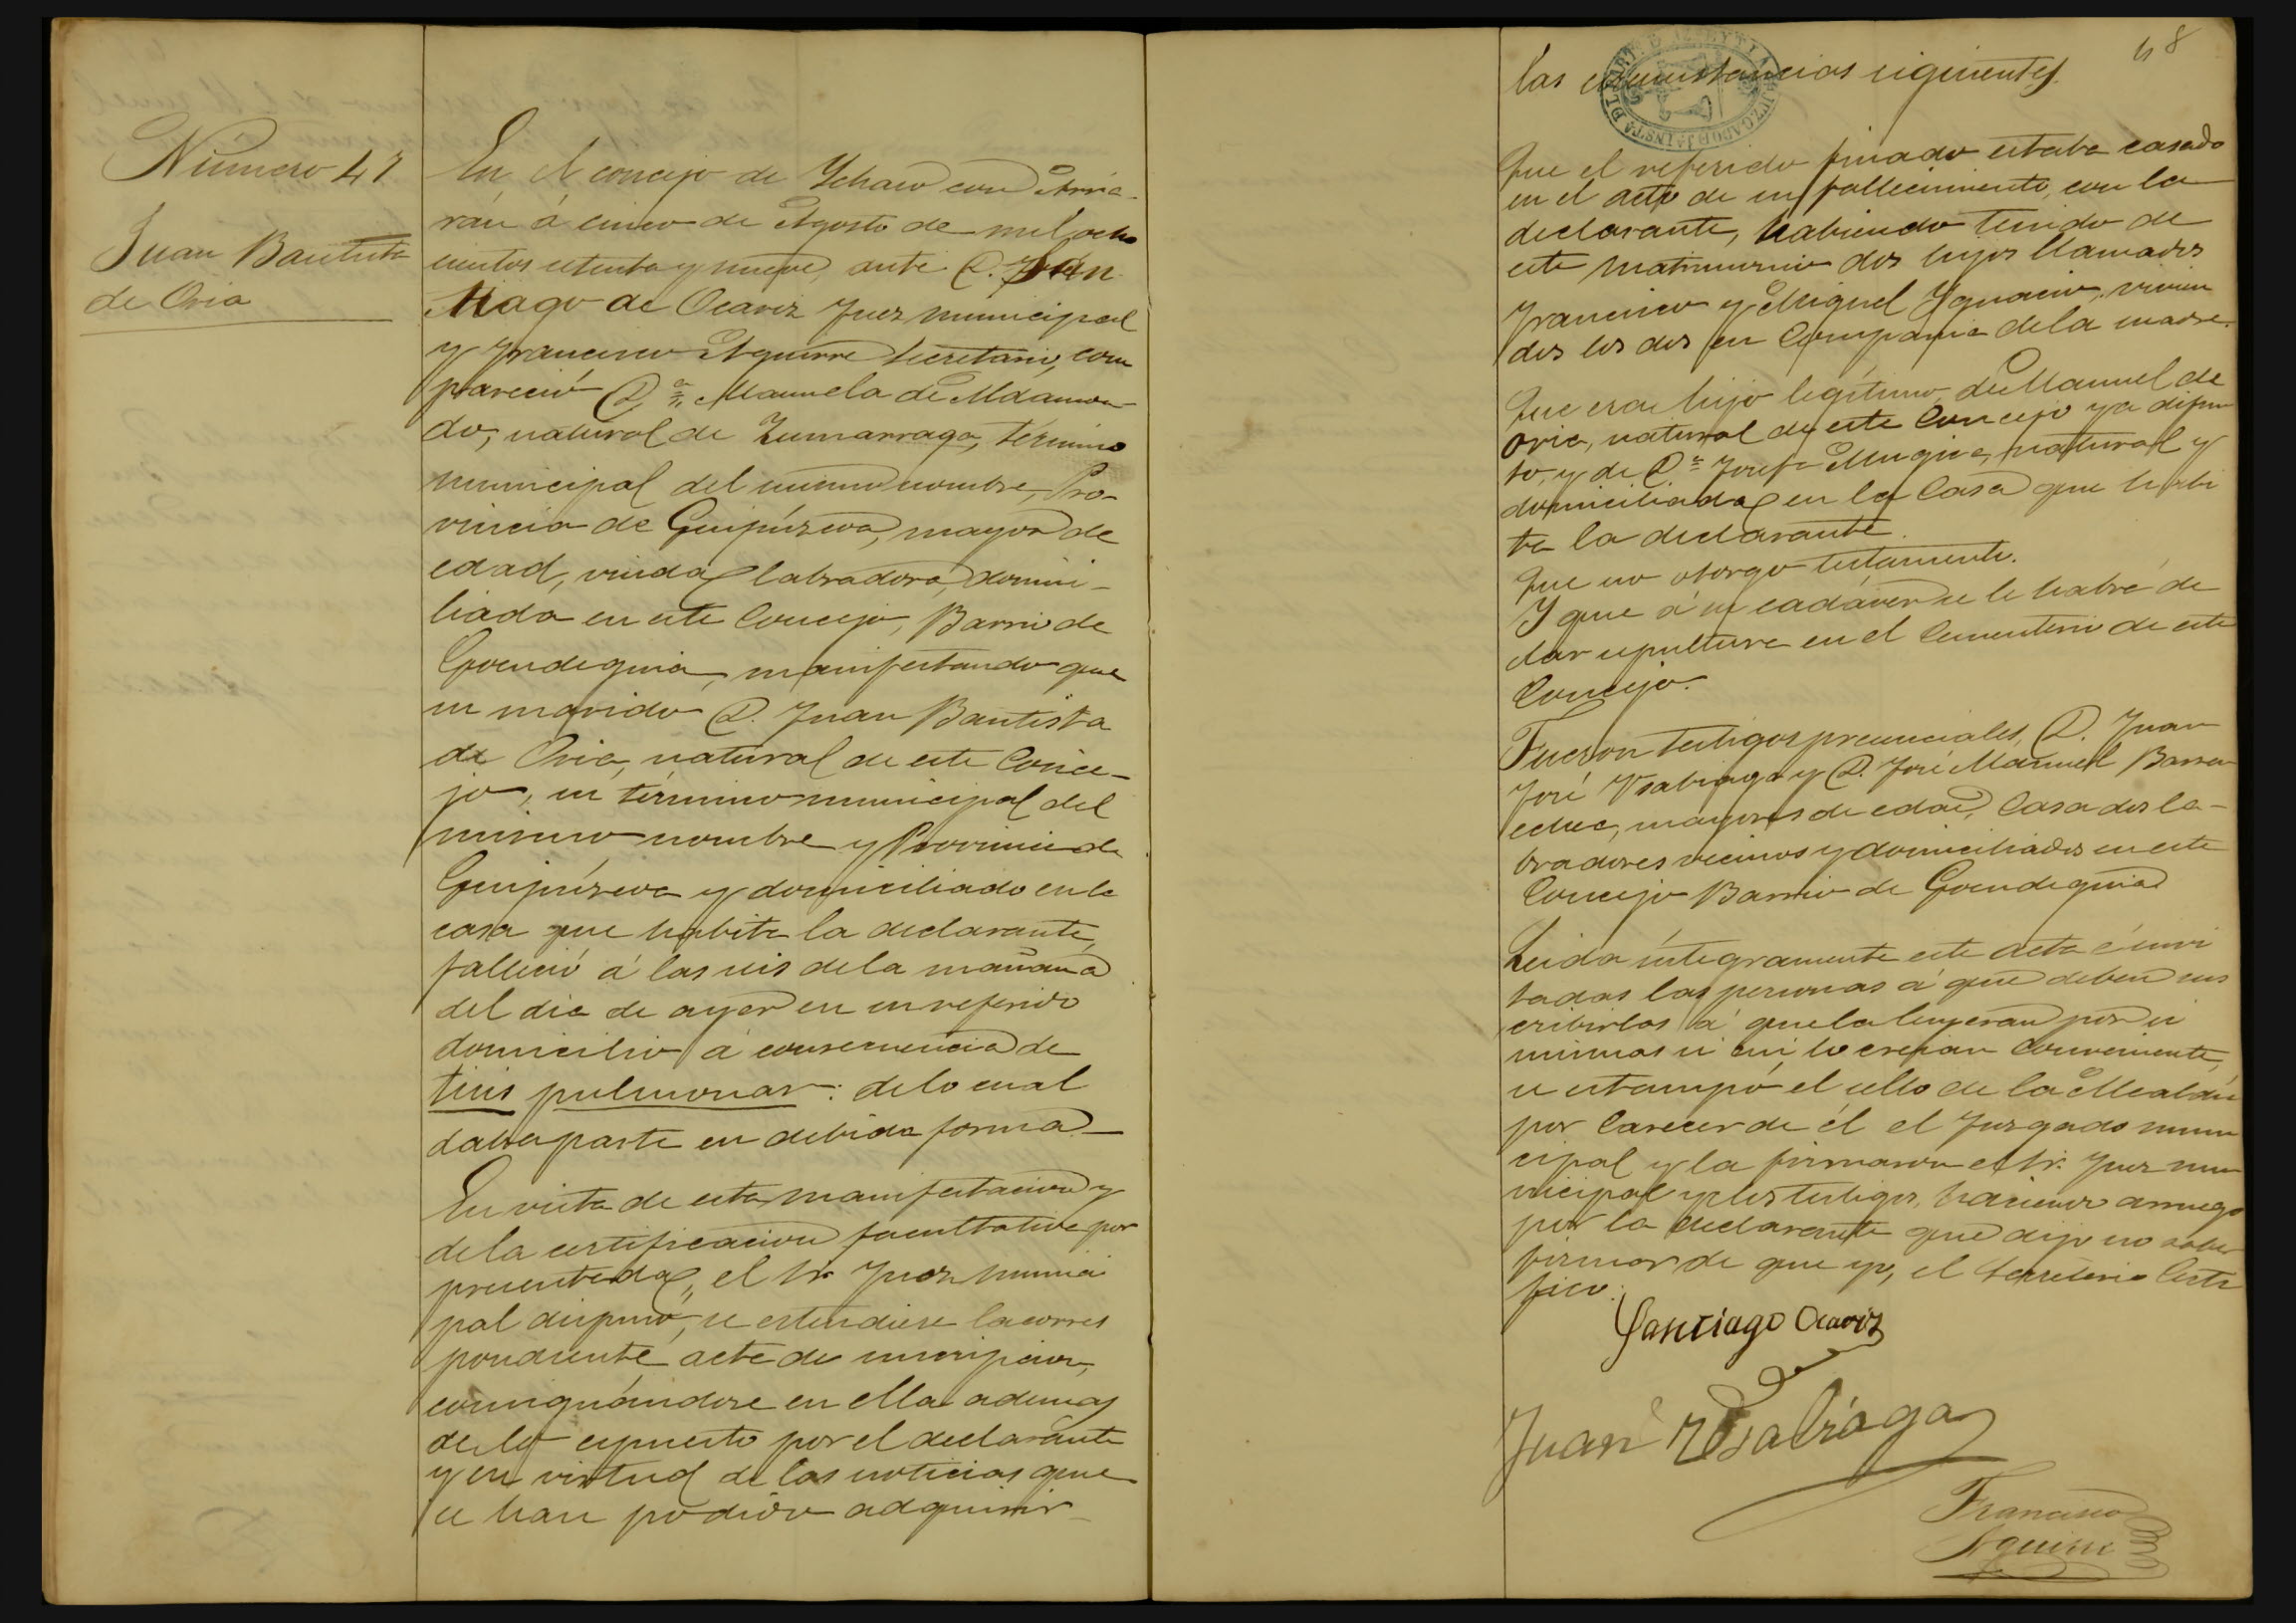 Número 47
Juan Bautista
de Oria
En el concejo de Ychaso con Arria-
rán á cinco de Agosto de mil ocho
cientos setenta y nueve, ante D. San
tiago de Ocariz Juez municipal
y Francisco Aguirre Secretario, com
pareció D.ª Manuela de
do, natural de Zumarraga, término
municipal del mismo nombre, Pro-
vincia de Guipúzcoa, mayor de
edad, viuda, labradora, domici-
liada en este Concejo, Barrio de
Goendeguia, manifestando que
su marido D. Juan Bautista
de Oria, natural de este Conce-
jo, en término municipal del
mismo nombre y Provincia de
Guipúzcoa y domiciliado en la
casa que habita la declarante,
falleció á las seis de la mañana
del dia de ayer en su referido
domicilio á consecuencia de
tisis pulmonar: de lo cual
daba parte en debida forma
En vista de esta manifestacion y
de la certificacion facultativa por
presentada, el Sr. Juez munici
pal dispuso, se estendiese la corres
pondiente acta de inscripcion,
consignándose en ella ademas
de lo espuesto por el declarante
y en virtud de las noticias que
se han podido adquirir
48
las circunstancias siguientes.
Que el referido finado estaba casado
en el acto de su fallecimiento, con la
declarante, habiendo tenido de
este matrimonio dos hijos llamados
Francisco y Miguel Ygnacio, vivien
dos los dos en Compañia de la madre.
Que era hijo legítimo de Manuel de
Oria, natural de este Concejo ya difun
to, y de D.ª Josefa Mugica, natural y
domiciliada en la Casa que habi
ta la declarante.
Que no otorgo testamento.
Y que á su cadáver se le habrá de
dar sepultura en el Cementerio de este
Concejo.
Fueron testigos presenciales, D. Juan
José Usabiaga y D. José Manuel Barren
echea, mayores de edad, Casados la-
bradores vecinos y domiciliados en este
Concejo Barrio de Goendeguia
Leida íntegramente este acta é invi
tadas las personas á que deben sus
cribirlas á que la leyeran por si
mismas si asi lo creian conveniente,
se estampó el sello de la Alcaldia
por Carecer de él el Juzgado muni
cipal y la firmaron el Sr. Juez mu
nicipal y los testigos, haciendo a ruego
por la declarante que dijo no saber
firmar de que yo, el Secretario Certi
fico.
Santiago Ocariz
Juan Usabiaga
Francisco
Aguirre